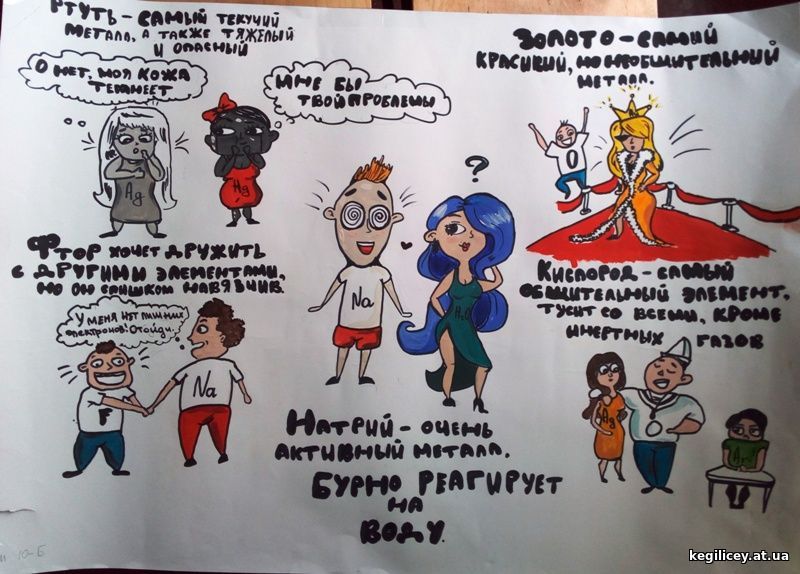 РТУТЬ - САМЫЙ ТЕКУЧИЙ
МЕТАЛЛ, А ТАКЖЕ ТЯЖЕЛЫЙ
И ОПАСНЫЙ
О НЕТ, МОЯ КОЖА
ТЕМНЕЕТ
МНЕ БЫ
ТВОИ ПРОБЛЕМЫ
Ag
Hg
ЗОЛОТО - САМЫЙ
КРАСИВЫЙ, НО НЕОБЩИТЕЛЬНЫЙ
МЕТАЛЛ.
O
ФТОР ХОЧЕТ ДРУЖИТЬ
С ДРУГИМИ ЭЛЕМЕНТАМИ,
НО ОН СЛИШКОМ НАВЯЗЧИВ.
У МЕНЯ НЕТ ЛИШНИХ
ЭЛЕКТРОНОВ! ОТОЙДИ.
F
Na
?
Na
H2O
НАТРИЙ - ОЧЕНЬ
АКТИВНЫЙ МЕТАЛЛ.
БУРНО РЕАГИРУЕТ
НА
ВОДУ.
КИСЛОРОД - САМЫЙ
ОБЩИТЕЛЬНЫЙ ЭЛЕМЕНТ,
ТУСИТ СО ВСЕМИ, КРОМЕ
ИНЕРТНЫХ ГАЗОВ
Ag
O
Ar
10-Б
kegilicey.at.ua